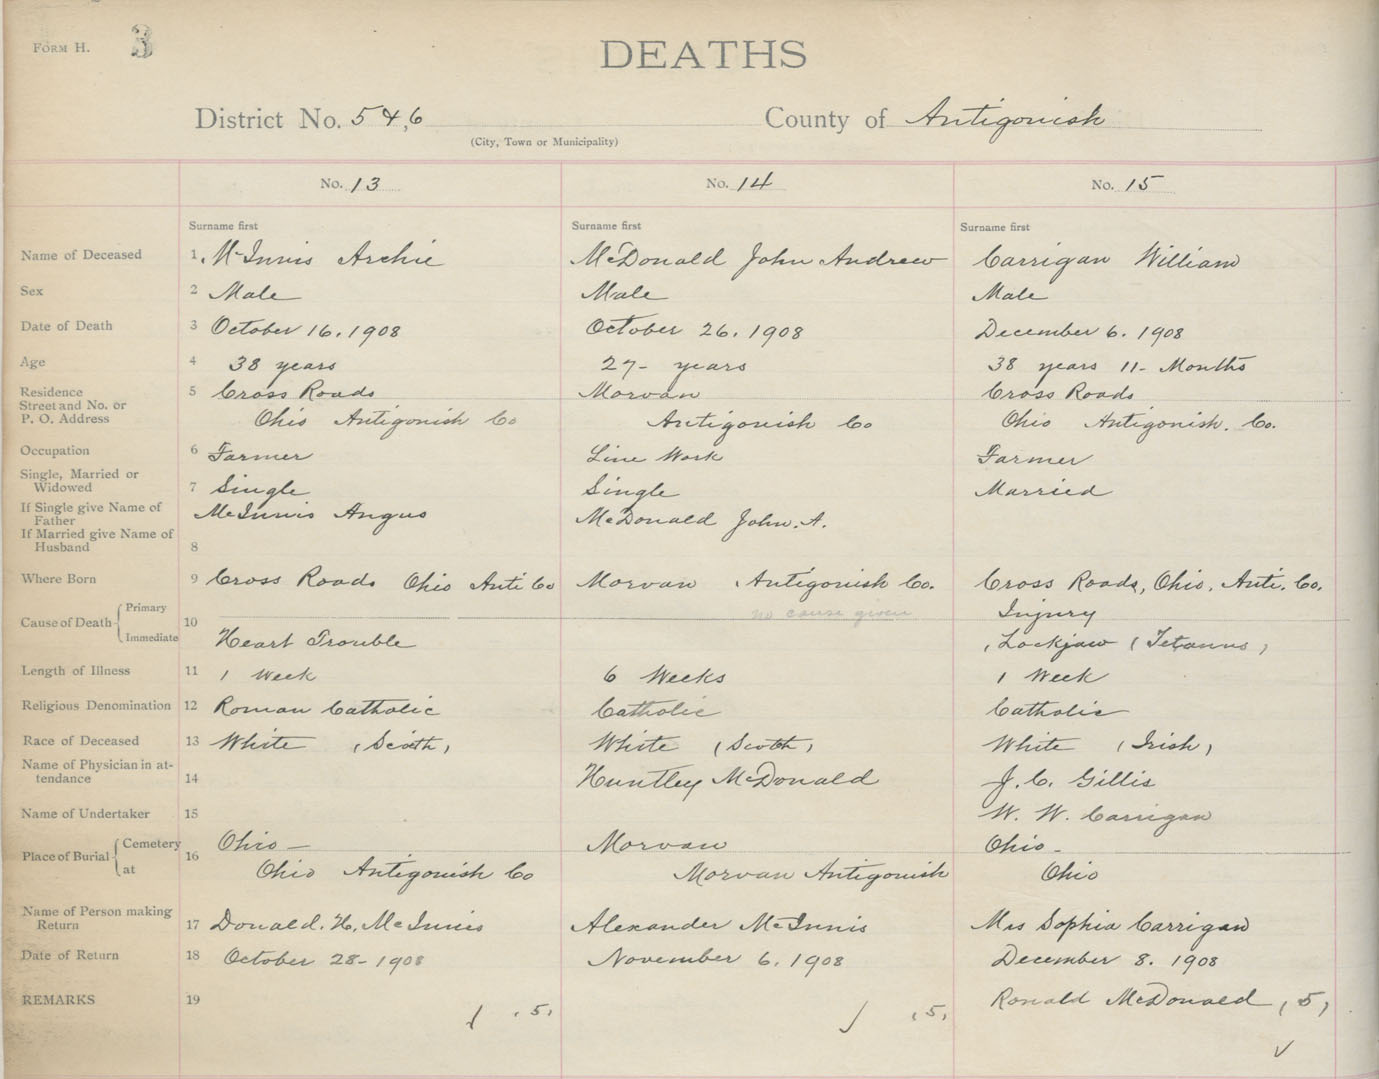 FORM H. 3
DEATHS
District No. 5 & 6 County of Antigonish
(City, Town or Municipality)
No. 13 No. 14 No. 15
Surname first Surname first Surname first
Name of Deceased 1 McInnis Archie McDonald John Andrew Carrigan William
Sex 2 Male Male Male
Date of Death 3 October 16. 1908 October 26. 1908 December 6. 1908
Age 4 38 years 27- years 38 years 11- Months
Residence 5 Cross Roads Morvan Cross Roads
Street and No. or
P. O. Address Ohio Antigonish Co Antigonish Co Ohio Antigonish. Co.
Occupation 6 Farmer Line Work Farmer
Single, Married or
Widowed 7 Single Single Married
If Single give Name of
Father McInnis Angus McDonald John. A.
If Married give Name of
Husband 8
Where Born 9 Cross Roads Ohio Anti Co Morvan Antigonish Co. Cross Roads, Ohio. Anti. Co.
Primary no cause given Injury
Cause of Death 10
Immediate Heart Trouble Lockjaw (Tetanus)
Length of Illness 11 1 Week 6 Weeks 1 Week
Religious Denomination 12 Roman Catholic Catholic Catholic
Race of Deceased 13 White (Scoth) White (Scoth) White (Irish)
Name of Physician in at-
tendance 14 Huntley McDonald J. C. Gillis
Name of Undertaker 15 W. W. Carrigan
Cemetery Ohio — Morvan Ohio -
Place of Burial 16
at Ohio Antigonish Co Morvan Antigonish Ohio
Name of Person making
Return 17 Donald. H. McInnis Alexander McInnis Mrs Sophia Carrigan
Date of Return 18 October 28- 1908 November 6. 1908 December 8. 1908
REMARKS 19 Ronald McDonald (5)
(5) (5)